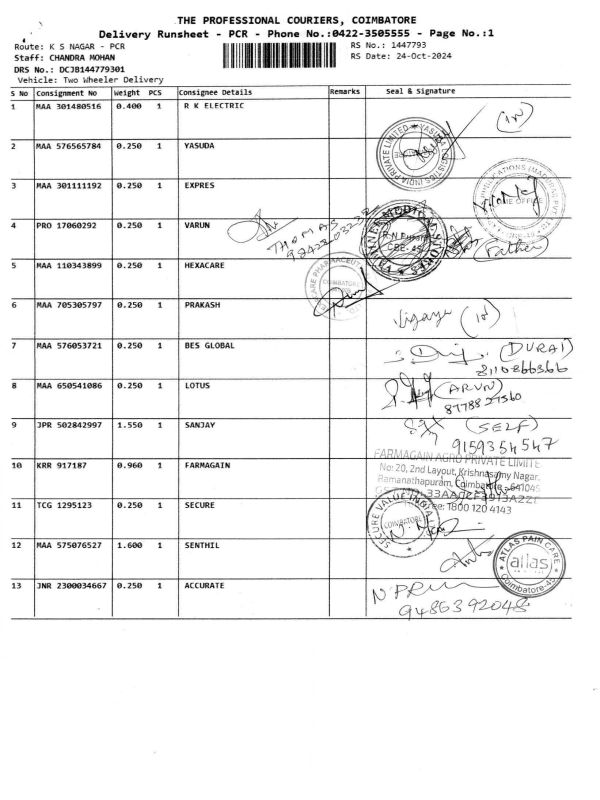 THE PROFESSIONAL COURIERS, COIMBATORE
Delivery Runsheet - PCR - Phone No.:0422-3505555 - Page No.:1
Route: K S NAGAR - PCR
RS No.: 1447793
Staff: CHANDRA MOHAN
RS Date: 24-Oct-2024
DRS No.: DCJB144779301
Vehicle: Two Wheeler Delivery
S No Consignment No Weight PCS Consignee Details Remarks Seal & Signature
1 MAA 301480516 0.400 1 R K ELECTRIC
2 MAA 576565784 0.250 1 YASUDA
3 MAA 301111192 0.250 1 EXPRES
4 PRO 17060292 0.250 1 VARUN
THOMAS
(Father)
5 MAA 110343899 0.250 1 HEXACARE
COIMBATORE
6 MAA 705305797 0.250 1 PRAKASH
7 MAA 576053721 0.250 1 BES GLOBAL
(DURAI)
8110866366
8 MAA 650541086 0.250 1 LOTUS
(ARUN)
8778827560
9 JPR 502842997 1.550 1 SANJAY
(SELF)
9159354547
10 KRR 917187 0.960 1 FARMAGAIN
FARMAGAIN AGRO PRIVATE LIMITE
No: 20, 2nd Layout, Krishnasamy Nagar,
Ramanathapuram, Coimbatore - 641045
free: 1800 120 4143
11 TCG 1295123 0.250 1 SECURE
SECURE VALUE INDIA
COIMBATORE
12 MAA 575076527 1.600 1 SENTHIL
ATLAS PAIN CARE
atlas
Coimbatore-45
13 JNR 2300034667 0.250 1 ACCURATE
9486392048